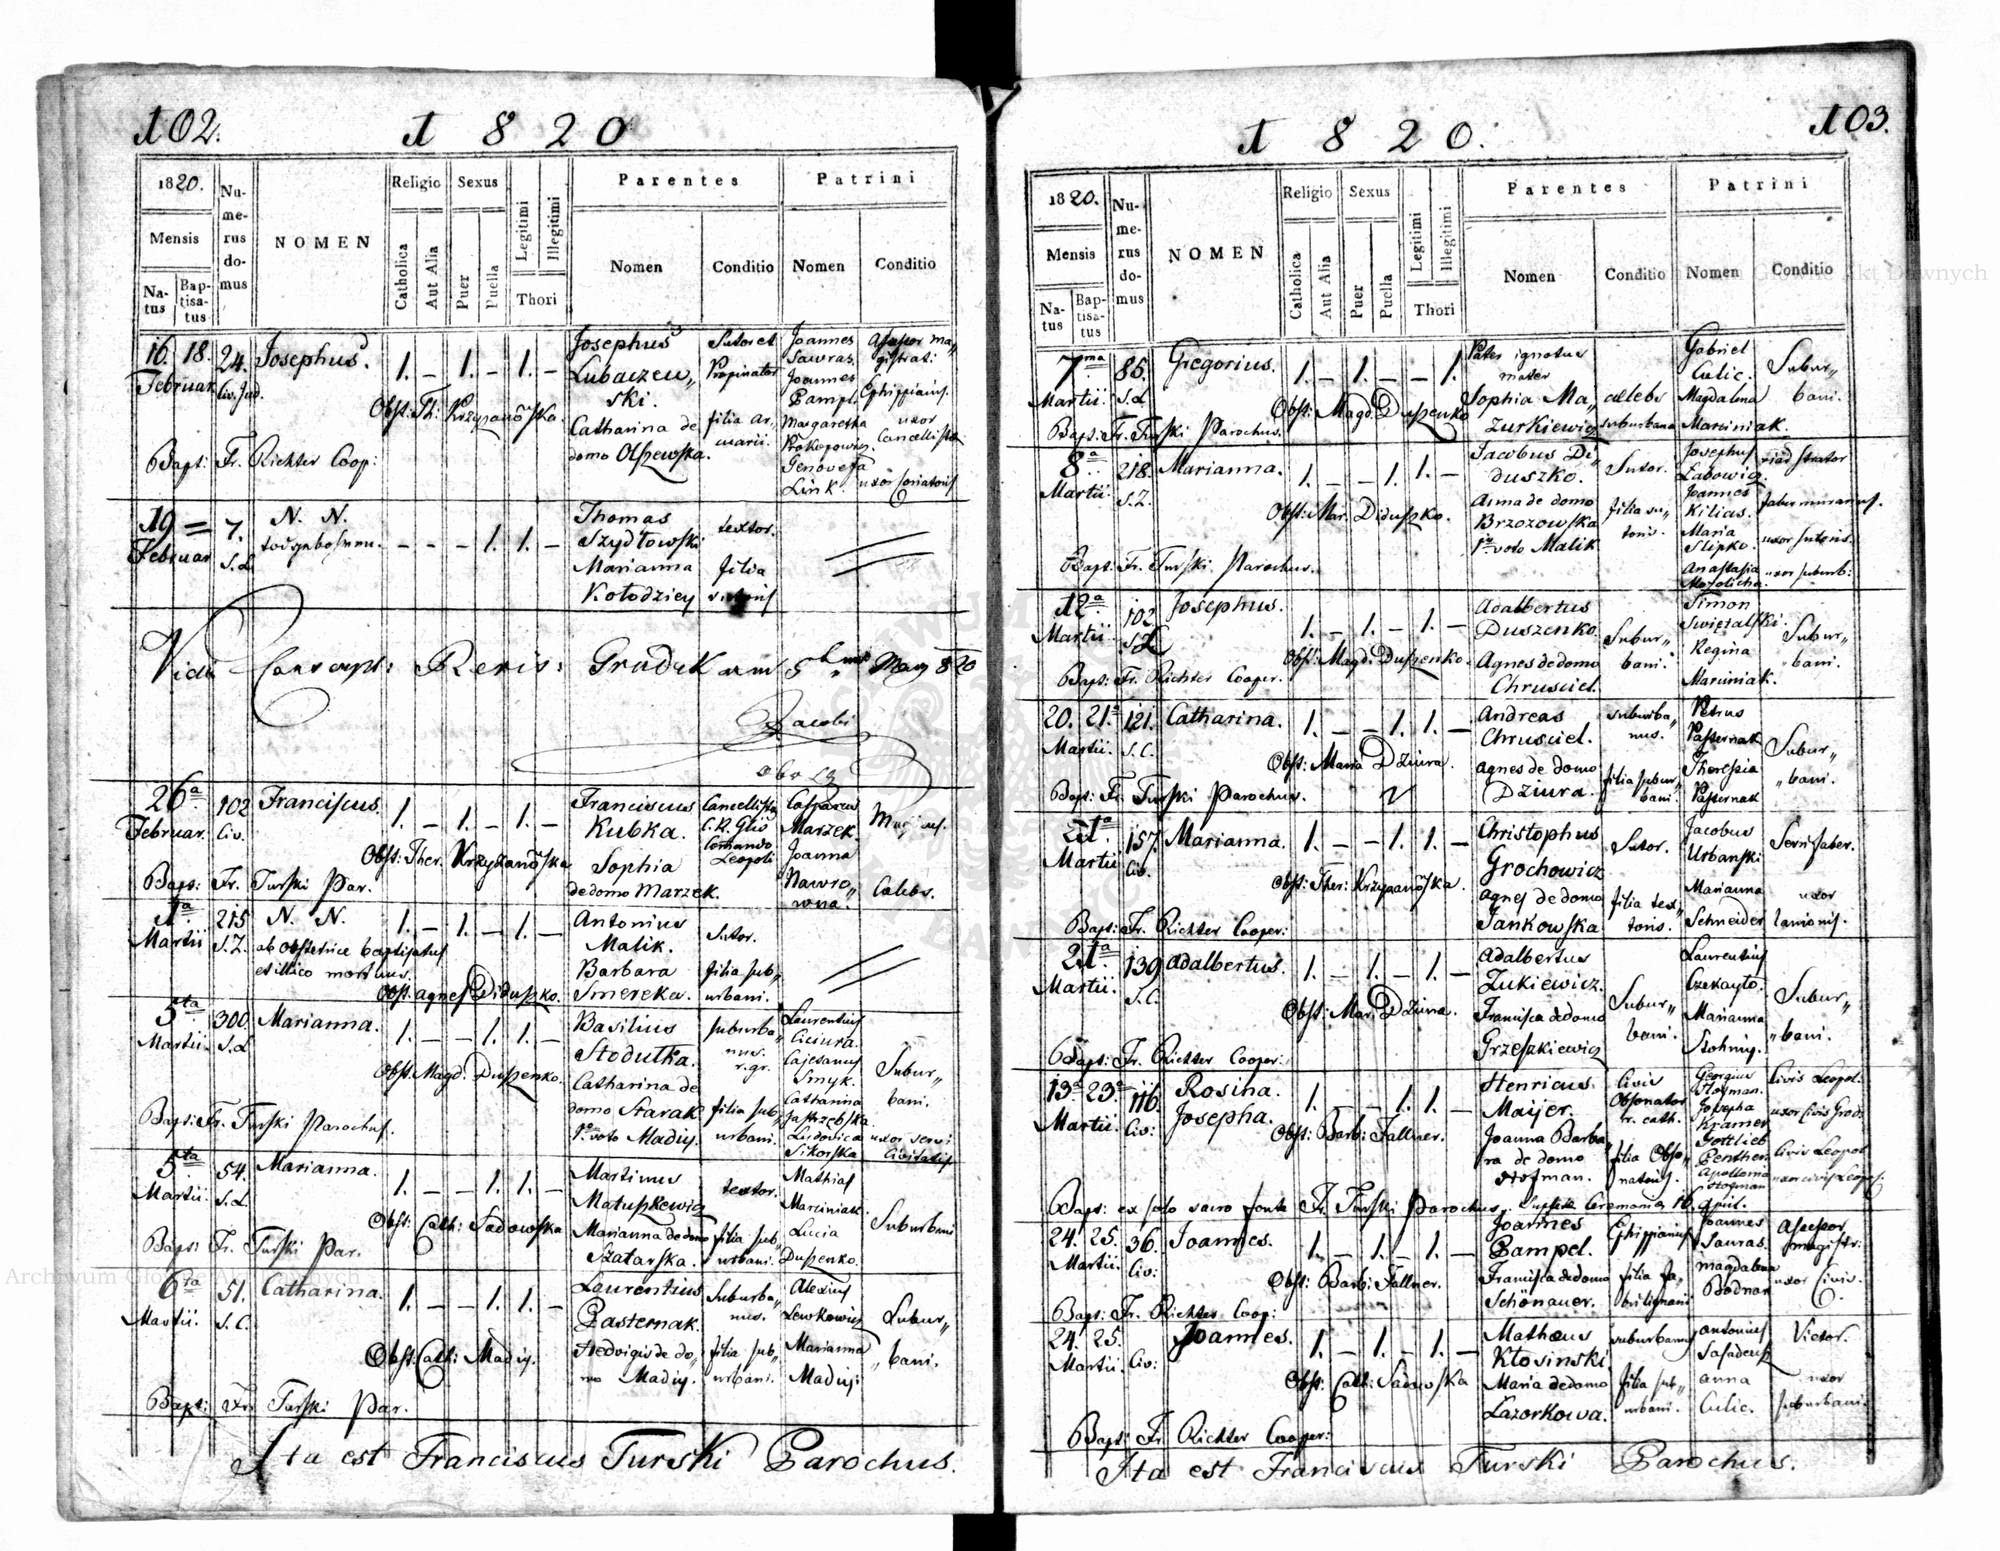 102.
1 8 2 0
1820.
Mensis
Natus
Baptisatus
Numerus domus
NOMEN
Religio
Catholica
Aut Alia
Sexus
Puer
Puella
Legitimi
Illegitimi
Thori
Parentes
Nomen
Conditio
Patrini
Nomen
Conditio
16. 18. 24. Josephus. 1. – 1. – 1. –
Februar. Civ. Jud.
Obst: Th: Krzyżanowska.
Josephus
Lubaczew„
ski.
Catharina de
domo Olszewska.
Sutor et
Propinator
filia ar„
Joannes
Sawras
Joannes
Pampl.
Margaretha
Prokopowicz
Genovefa
Link.
Assessor ma„
gistrat:
Ephippiarius.
uxor
Cancellistae
uxor
Bapt: Fr. Richter Coop:
19 = 7. N. N. – – – 1. 1. –
Februar. S.L.
Thomas
Szydłowski
Marianna
Kołodziey
textor.
filia
sutoris
Vidi Conscript: Revis: Grudek am May 820
Jacobi
26a 102 Franciscus. 1. – 1. – 1. –
Februar. Civ.
Obst: Ther. Krzyżanowska
Franciscus
Kubka.
Sophia
de domo Marzek.
Cancellista
Leopoli
Casparus
Marzek.
Joanna
Nawro„
wna.
Caelebs.
Bapt: Fr. Turski Par.
1a 215 N. N. 1. – 1. – 1. –
Martii S.L.
ab obstetrice baptisatus
et illico mortuus.
Obst. Agnes Diduszko.
Antonius
Malik.
Barbara
Smereka.
Sutor.
filia sub„
urbani.
5ta 300 Marianna. 1. – – 1. 1. –
Martii. S.L.
Obst. Magd. Duszenko.
Basilius
Stodułka.
Catharina de
domo Starak
1o voto Madiy.
suburba„
nus.
r. gr.
filia sub„
urbani.
Laurentius
Ciciura.
Cajetanus
Smyk.
Catharina
Jastrzębska.
Ludovica
Sikorska
Subur„
bani.
uxor servi
Civitatis
Bapt: Fr. Turski Parochus.
5ta 54. Marianna. 1. – – 1. 1. –
Martii. S.L.
Obst: Cath: Sadowska
Martinus
Matuszkewicz
Marianna de domo
Szatarska.
textor.
filia sub„
urbani.
Mathias
Marciniak.
Lucia
Duszenko.
Suburbani
Bapt: Fr. Turski Par.
6ta 51. Catharina. 1. – – 1. 1. –
Martii. S.C.
Obst: Cath: Madiy.
Laurentius
Pasternak.
Hedvigis de do„
mo Madiy.
Suburba„
nus.
filia sub„
urbani.
Alexius
Lewkowicz
Marianna
Madiy.
Subur„
„bani.
Bapt: Fr. Turski Par.
Ita est Franciscus Turski Parochus.
103.
1 8 2 0.
1820.
Mensis
Natus
Baptisatus
Numerus domus
NOMEN
Religio
Catholica
Aut Alia
Sexus
Puer
Puella
Legitimi
Illegitimi
Thori
Parentes
Nomen
Conditio
Patrini
Nomen
Conditio
7ma 85. Gregorius. 1. – 1. – – 1.
Martii. S.L.
Obst: Magd: Duszenko
Pater ignotus
mater
Sophia Ma„
zurkiewicz
caelebs
suburbana
Gabriel
Culic.
Magdalena
Marciniak.
Subur„
bani.
Bapt: Fr. Turski Parochus.
8a 218. Marianna. 1. – – 1. 1. –
Martii. S.L.
Obst: Mar. Diduszko.
Jacobus Di„
duszko.
Anna de domo
Brzozowska
1o voto Malik
Sutor.
filia su„
toris.
Josephus
Labowicz.
Joannes
Kilias.
Maria
Slipko.
Anastasia
faber murarius.
uxor sutoris.
uxor suburb:
Bapt: Fr. Turski Parochus.
12a 102. Josephus. 1. – 1. – 1. –
Martii S.L.
Obst: Magd: Duszenko.
Adalbertus
Duszenko.
Agnes de domo
Chrusciel.
Subur„
bani.
Simon
Swiętalski.
Regina
Marciniak.
Subur„
„bani.
Bapt: Fr. Richter Cooper.
20. 21a 121. Catharina. 1. – – 1. 1. –
Martii. S.C.
Obst: Maria Dziura.
Andreas
Chrusciel.
Agnes de domo
Dziura.
suburba„
nus.
filia subur„
bani.
Petrus
Pasternak
Theresia
Pasternak
Subur„
„bani.
Bapt: Fr. Turski Parochus.
21a 157. Marianna. 1. – – 1. 1. –
Martii Civ.
Obst: Ther: Krzyżanowska.
Christophus
Grochowicz
Agnes de domo
Jankowska
Sutor.
filia tex„
toris.
Jacobus
Urbanski
Marianna
Schneider
Ferri faber.
uxor
lanionis.
Bapt: Fr. Richter Cooper:
21a 139. Adalbertus. 1. – 1. – 1. –
Martii. S.C.
Obst: Mar. Dziura.
Adalbertus
Zukiewicz.
Francisca de domo
Grzeszkiewicz
Subur„
bani.
Laurentius
Czekayło.
Marianna
Subur„
„bani.
Bapt: Fr. Richter Cooper:
13a 23a 116. Rosina. 1. – – 1. 1. –
Martii. Civ: Josepha.
Obst: Barb: Fallner.
Henricus
Maijer.
Joanna Barba„
ra de domo
Hofman.
Civis
Obsonator
r. cath.
filia Obso„
natoris.
Georgius
Hofman.
Josepha
Kramer
Gottlieb
Penther.
Apollonia
Hofman
Civis Leopol:
uxor Civis Grod:
Civis Leopol
uxor civis Leopol:
Bapt: ex solo sacro fonte Fr. Turski Parochus. Supplet. Ceremoniae 16. April.
24. 25. 36. Joannes. 1. – 1. – 1. –
Martii. Civ:
Obst: Barb: Fallner.
Joannes
Pampel.
Francisca de domo
Schönauer.
Ephippiarius
filia fa„
bri lignarii
Joannes
Sauras.
Magdalena
Bodnar
Assessor
magistr:
uxor Civis.
Bapt: Fr. Richter Coop:
24. 25. Joannes. 1. – 1. – 1. –
Martii. Civ:
Obst: Cath: Sadowska
Mathaeus
Kłosinski.
Maria de domo
Lazorkowa.
suburbanus
filia sub„
urbani.
Antonius
Anna
Culic.
Vietor.
uxor
suburbani.
Bapt: Fr. Richter Cooper:
Ita est Franciscus Turski Parochus.
Archiwum Główne Akt Dawnych